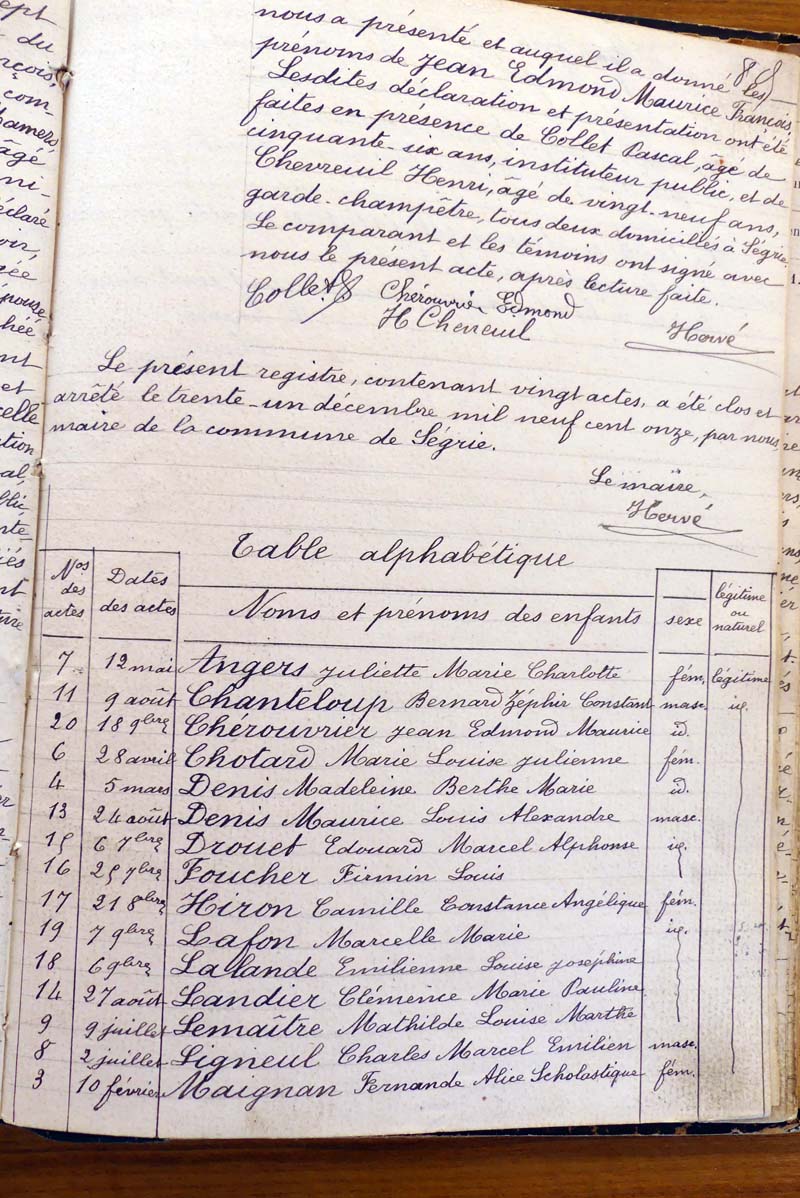 cept
du
çois,
com-
Mamers,
âgé
ni-
éclaré
oir,
gée
épouse
chée
nt
et
celle
ition
al,
blic,
nte
iés
nt
toire
88
nous a présenté et auquel il a donné les
prénoms de Jean Edmond Maurice François,
Lesdites déclaration et présentation ont été
faites en présence de Collet Pascal, âgé de
cinquante-six ans, instituteur public, et de
Chevreuil Henri, âgé de vingt-neuf ans,
garde-champêtre, tous deux domiciliés à Ségrie.
Le comparant et les témoins ont signé avec
nous le présent acte, après lecture faite.
Collet Chérouvrier Edmond
H Chevreuil Hervé
Le présent registre, contenant vingt actes, a été clos et
arrêté le trente-un décembre mil neuf cent onze, par nous,
maire de la commune de Ségrie.
Le maire,
Hervé
Table alphabétique
Nos des actes Dates des actes Noms et prénoms des enfants sexe légitime ou naturel
7 12 mai Angers Juliette Marie Charlotte fém. légitime
11 9 août Chanteloup Bernard Zéphir Constant masc. id.
20 18 9bre Chérouvrier Jean Edmond Maurice id.
6 28 avril Chotard Marie Louise Julienne fém.
4 5 mars Denis Madeleine Berthe Marie id.
13 24 août Denis Maurice Louis Alexandre masc.
15 6 7bre Drouet Edouard Marcel Alphonse id.
16 25 7bre Foucher Firmin Louis
17 21 8bre Hiron Camille Constance Angélique fém.
19 7 9bre Lafon Marcelle Marie id.
18 6 9bre Lalande Emilienne Louise Joséphine
14 27 août Landier Clémence Marie Pauline
9 9 juillet Lemaître Mathilde Louise Marthe
8 2 juillet Ligneul Charles Marcel Emilien masc.
3 10 février Maignan Fernande Alice Scholastique fém.